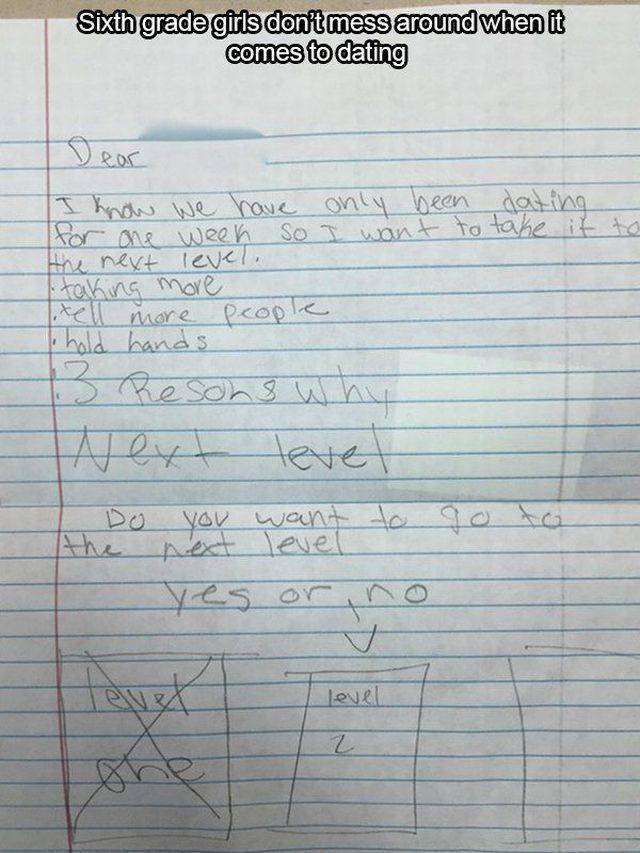 Sixth grade girls don't mess around when it
comes to dating
Dear
I know we have only been dating
for one week so I want to take it to
the next level.
• talking more
• tell more people
• hold hands
3 Resons why
Next level
Do you want to go to
the next level
yes or no
level
one
level
2